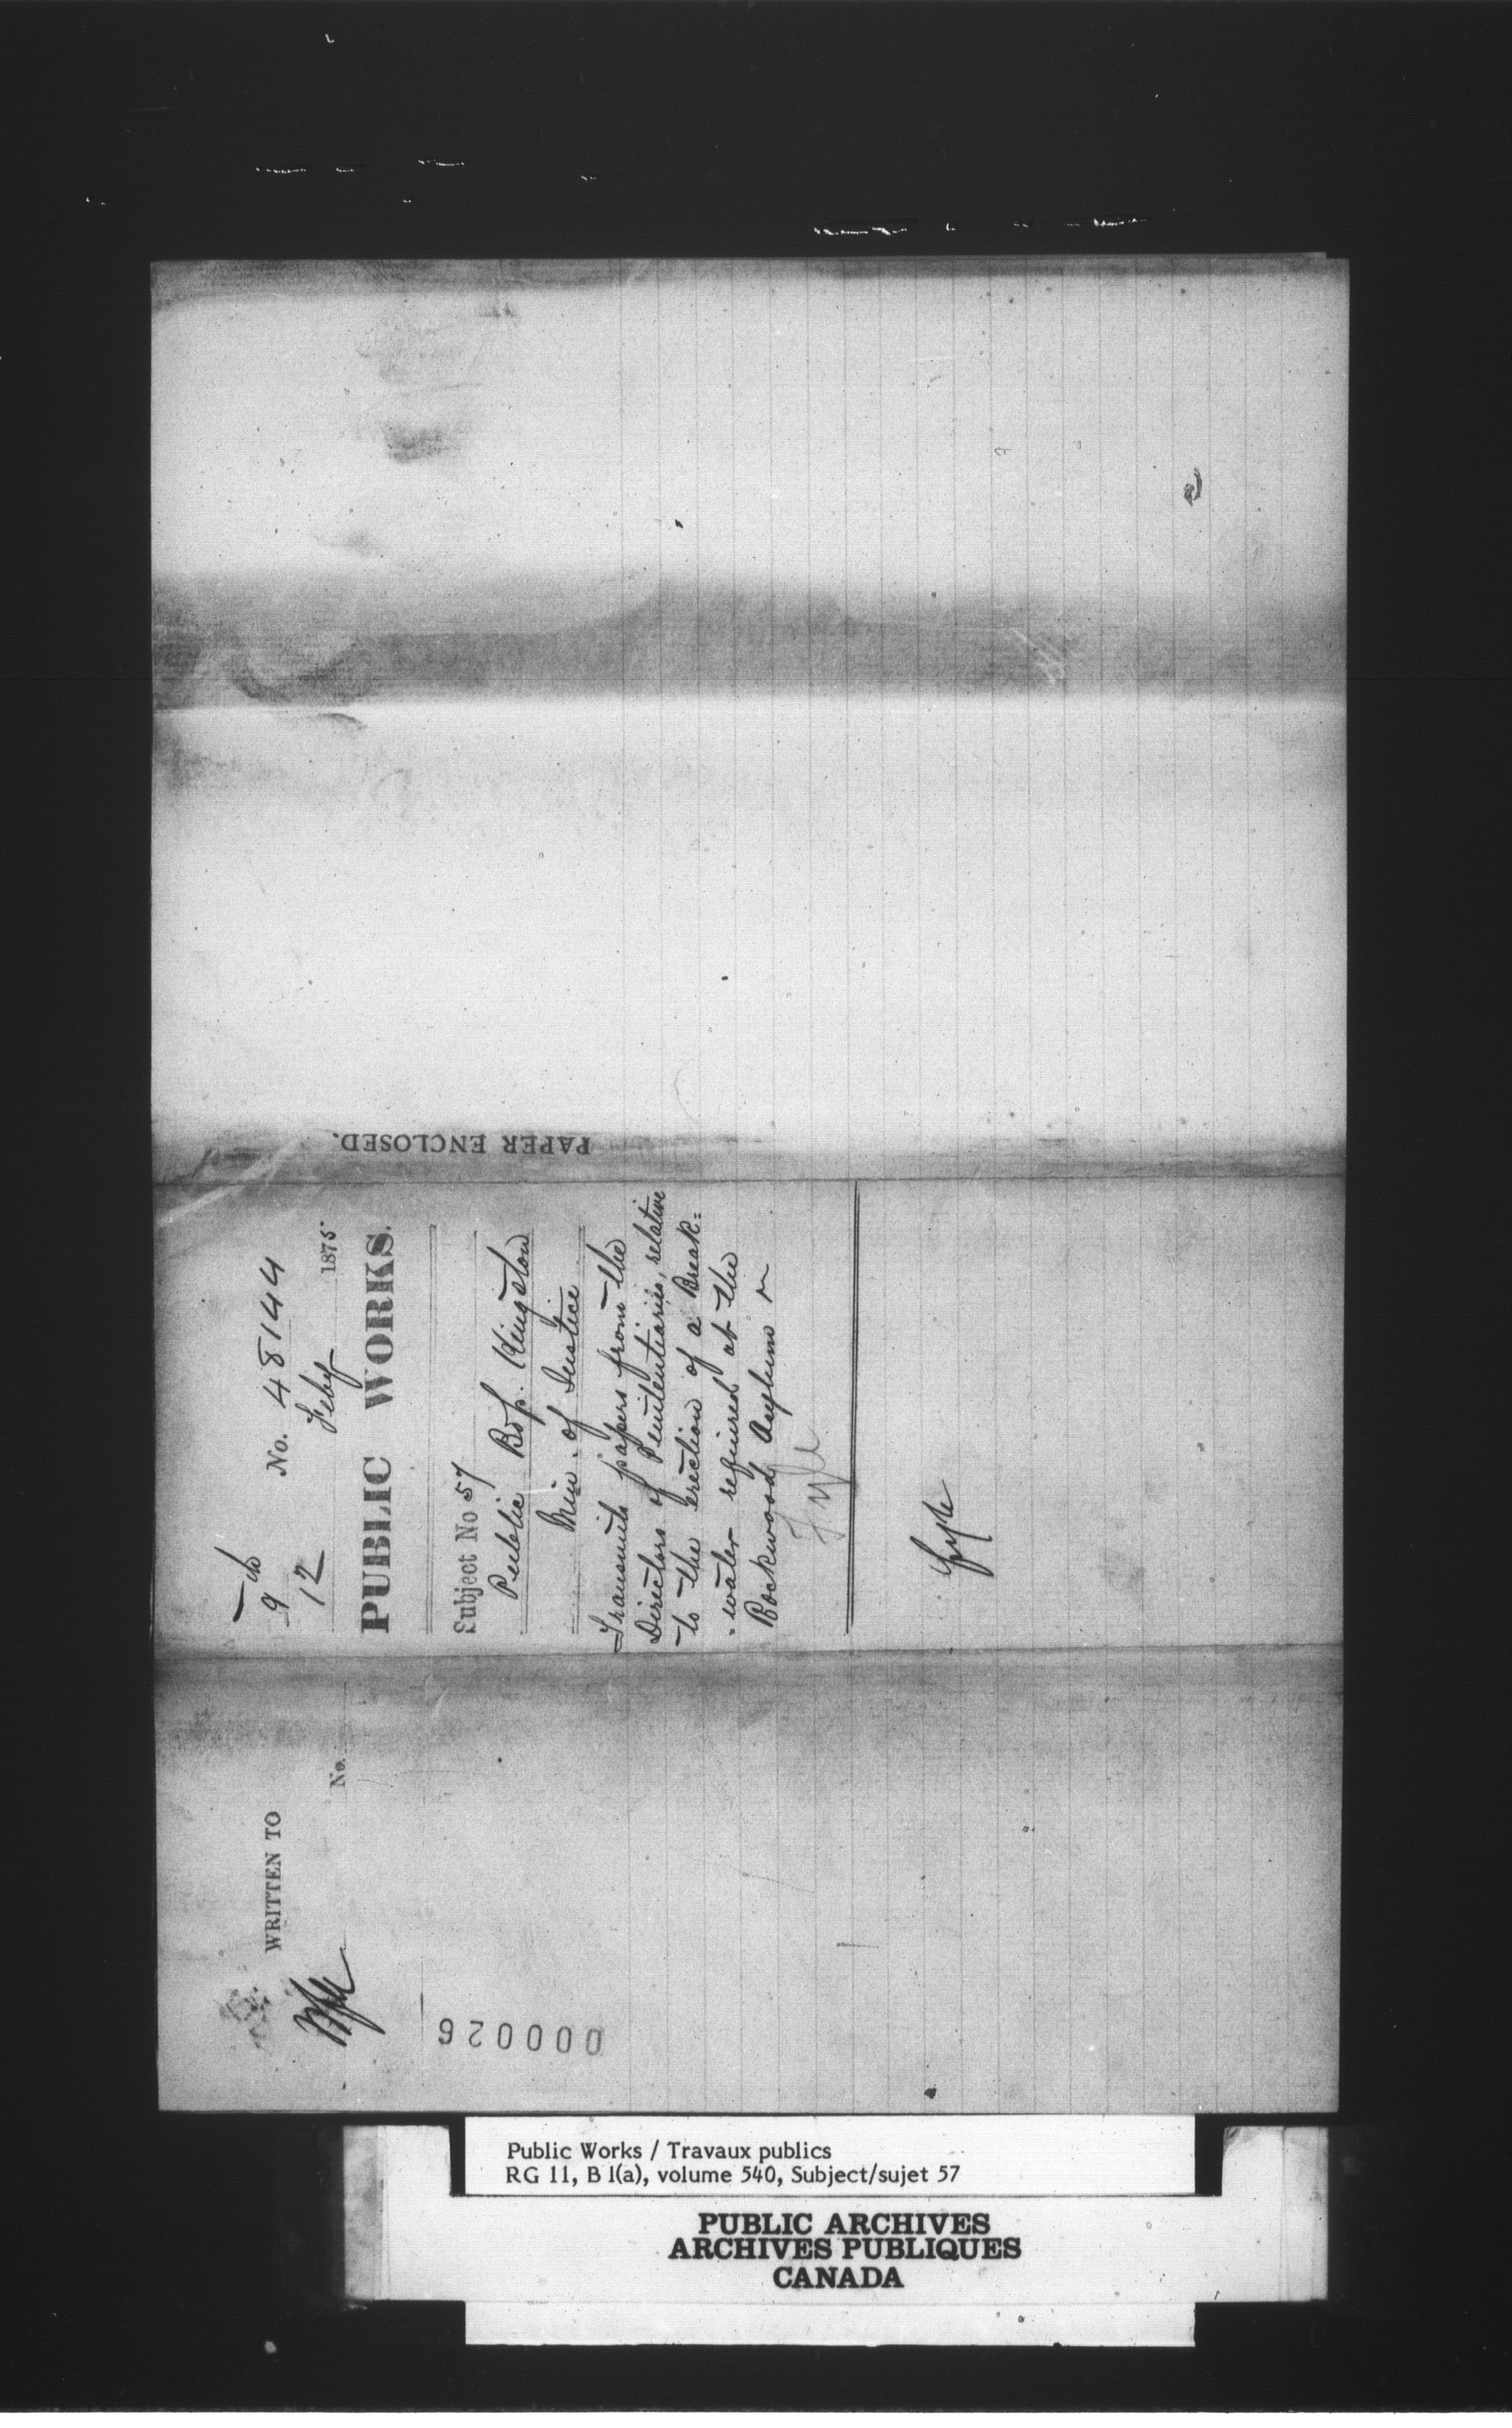 PAPER ENCLOSED.
9th No. 48144
12 Feby 1875
PUBLIC WORKS.
Subject No 57
Public Bdgs. Kingston
Min. of Justice
Transmits papers from the
Directors of Penitentiaries, relative
to the erection of a Break=
-water required at the
Rockwood Asylum
Fyle
fyle
WRITTEN TO
No.
000026
Public Works / Travaux publics
RG 11, B1(a), volume 540, Subject/sujet 57
PUBLIC ARCHIVES
ARCHIVES PUBLIQUES
CANADA